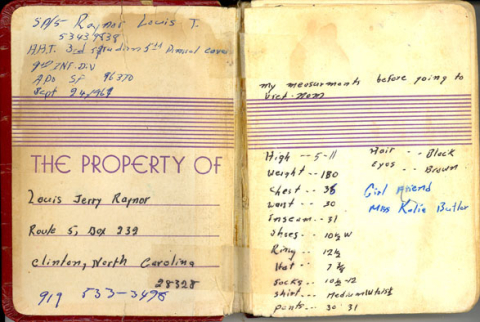 SP/5 Raynor Louis J.
53439838
H.H.T. 3rd Squadron 5th
9th INF. DIV
APO SF 96370
Sept 24, 1969
THE PROPERTY OF
Louis Jerry Raynor
Route 5, Box 239
Clinton, North Carolina
28328
919 533-3498
my measurments before going to
Viet Nam
High -- 5-11
Weight -- 180
Chest -- 38
Wast -- 30
Inseam -- 31
Shoes -- 10½ W
Ring -- 12½
Hat -- 7
Socks -- 10½
Shirt -- Medium
Pants -- 30 31
Hair -- Black
eyes -- Brown
Girl Friend
Miss Katie Butler